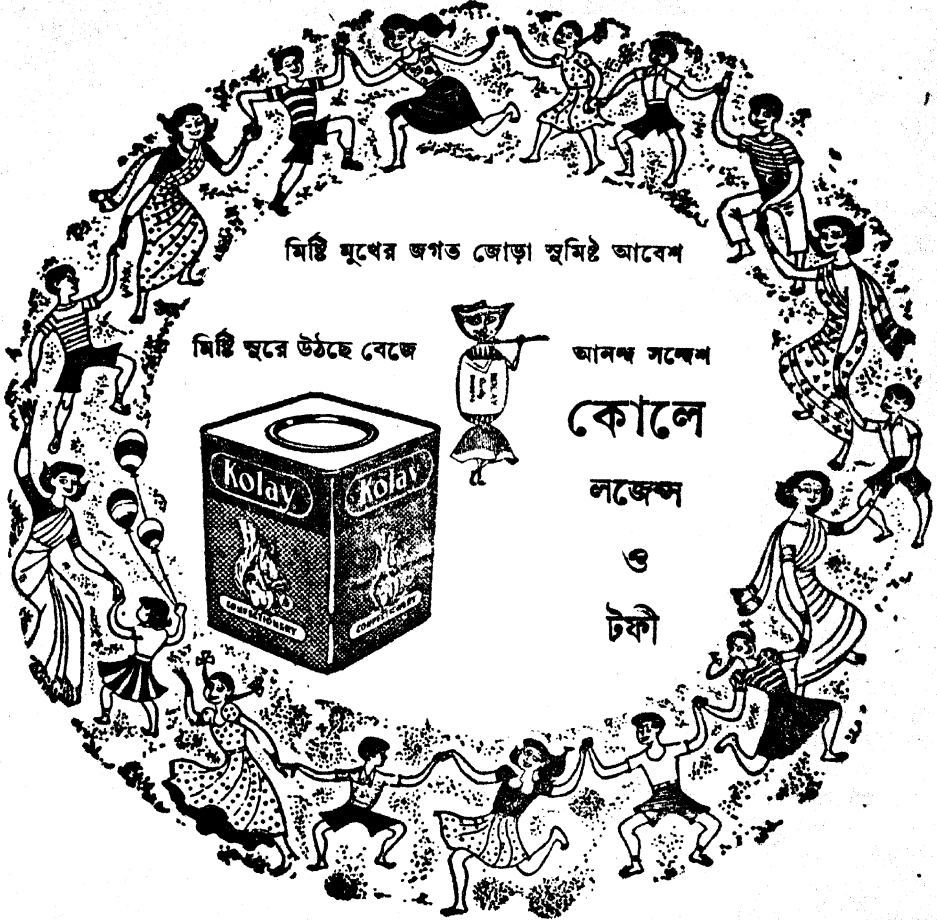 মিষ্টি মুখের জগত জোড়া সুমিষ্ট আবেশ
মিষ্টি সুরে উঠছে বেজে
আনন্দ সন্দেশ
কোলে
লজেন্স
ও
টফী
Kolay
Kolay
CONFECTIONERY
CONFECTIONERY